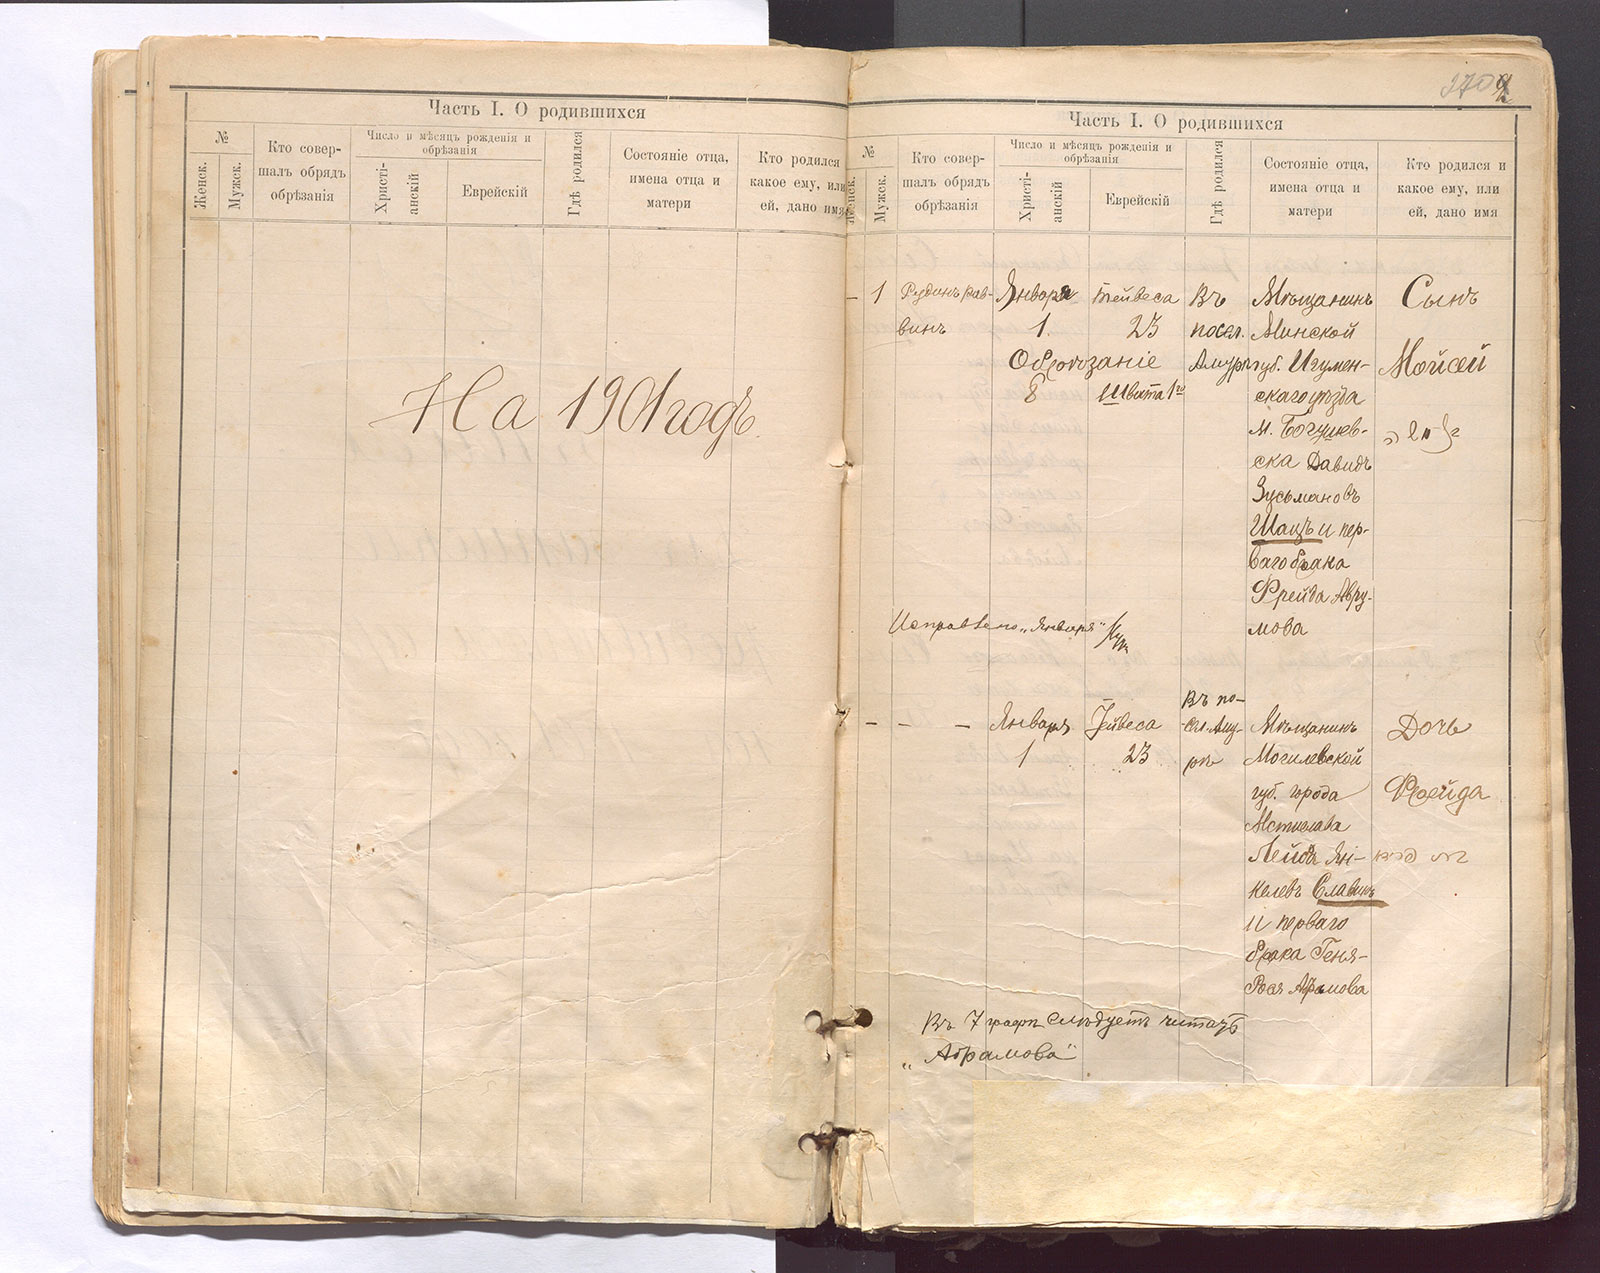 Часть I. О родившихся
№
Женск.
Мужск.
Кто совер-
шалъ обрядъ
обрѣзанія
Число и мѣсяцъ рожденія и
обрѣзанія
Христі-
анскій
Еврейскій
Гдѣ родился
Состояніе отца,
имена отца и
матери
Кто родился
какое ему, или
ей, дано имя
На 1901 годъ.
Часть I. О родившихся
№
Женск.
Мужск.
Кто совер-
шалъ обрядъ
обрѣзанія
Число и мѣсяцъ рожденія и
обрѣзанія
Христі-
анскій
Еврейскій
Гдѣ родился
Состояніе отца,
имена отца и
матери
Кто родился и
какое ему, или
ей, дано имя
– 1
Рудинъ рав-
винъ
Января
1.
Обрѣзаніе
8
Тейвеса
23
Швата 1го
Въ
посел.
Амуръ
Мѣщанинъ
Минской
губ. Игумен-
скаго уѣзда
м. Богушев-
ска Давидъ
Зусьмановъ
Шацъ и пер-
ваго брака
Фрейда Авру-
мова
Сынъ
Мойсей
Исправлено „Января"
– – –
Января
1
Тейвеса
23
Въ по-
сел. Аму-
рѣ
Мѣщанинъ
Могилевской
губ. города
Мстислава
Лейба Ян-
келевъ Славинъ
и перваго
брака Геня-
Рося
Дочь
Фрейда
Въ 7 графѣ слѣдуетъ читать
„Абрамова"